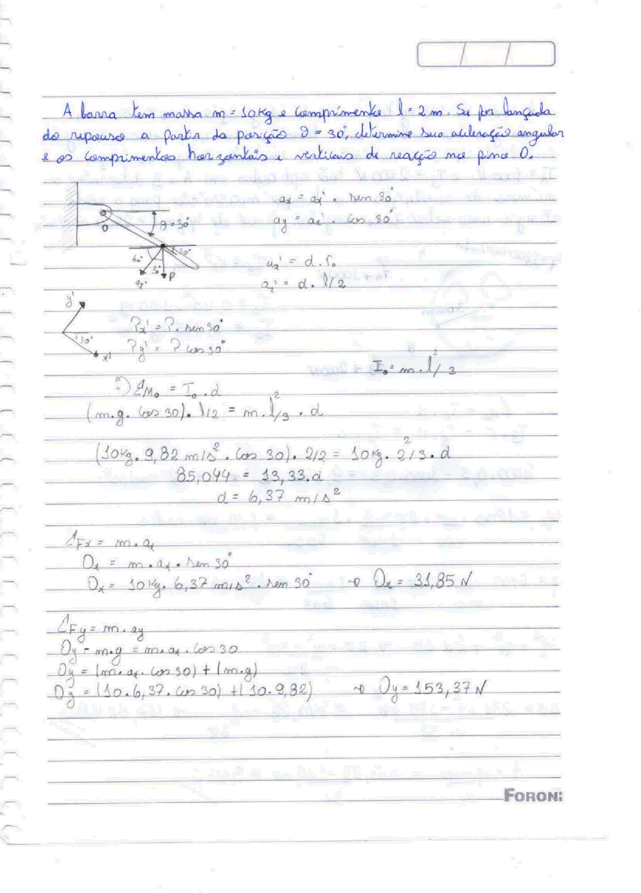 A barra tem massa m = 10kg e comprimento l = 2 m. Se for lançada
do repouso a partir da posição θ = 30°, determine sua aceleração angular
e os comprimentos horizontais e verticais de reação no pino O.
ax = ax'. sen 30°
ay = ax'. cos 30°
θ = 30°
O
30°
60°
30°
P
ax'
ax' = d. ro
ax' = d. l/2
y'
30°
x'
Px' = P. sen 30°
Py' = P cos 30°
Io = m. l²/3
ΣMo = Io . d
(m.g. cos 30). l/2 = m. l²/3 . d
(10kg. 9,82 m/s². cos 30). 2/2 = 10kg. 2²/3. d
85,044 = 13,33.d
d = 6,37 m/s²
ΣFx = m.ax
Ox = m.ax. sen 30°
Ox = 10kg. 6,37 m/s². sen 30° → Ox = 31,85 N
ΣFy = m. ay
Oy - m.g = m.ax. cos 30
Oy = (m.ax. cos 30) + (m.g)
Oy = (10.6,37. cos 30) + (10.9,82) → Oy = 153,37 N
FORONI